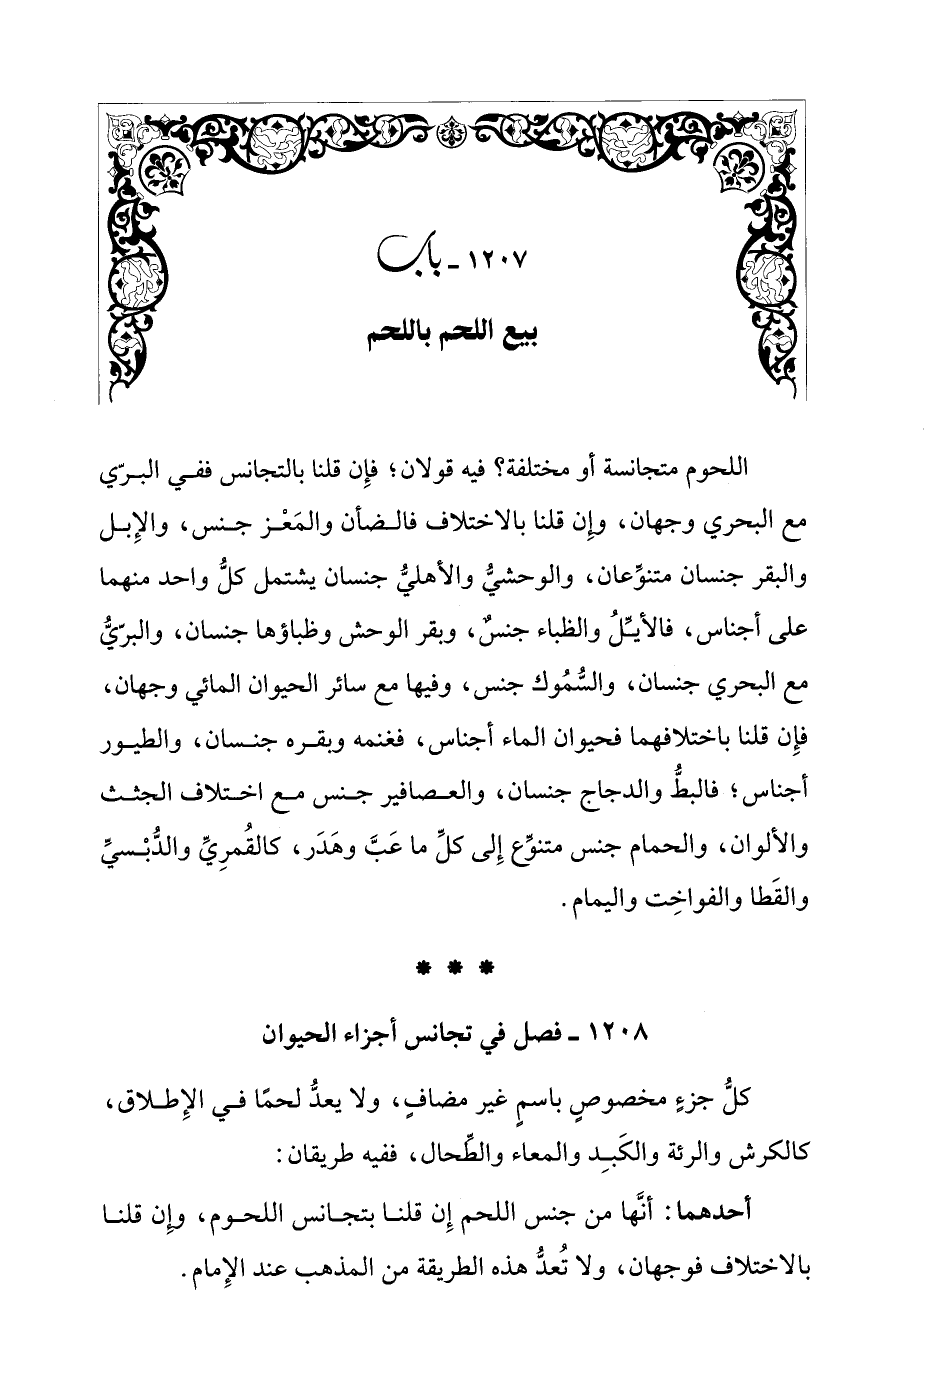 ١٢٠٧ - باب
بيع اللحم باللحم
اللحوم متجانسة أو مختلفة؟ فيه قولان؛ فإن قلنا بالتجانس ففي البرّي
مع البحري وجهان، وإن قلنا بالاختلاف فالضأن والمَعْز جنس، والإبل
والبقر جنسان متنوِّعان، والوحشيُّ والأهليُّ جنسان يشتمل كلُّ واحد منهما
على أجناس، فالأيِّلُ والظباء جنسٌ، وبقر الوحش وظباؤها جنسان، والبرّيُّ
مع البحري جنسان، والسُّمُوك جنس، وفيها مع سائر الحيوان المائي وجهان،
فإن قلنا باختلافهما فحيوان الماء أجناس، فغنمه وبقره جنسان، والطيور
أجناس؛ فالبطُّ والدجاج جنسان، والعصافير جنس مع اختلاف الجثث
والألوان، والحمام جنس متنوِّع إلى كلِّ ما عَبَّ وهَدَر، كالقُمرِيِّ والدُّبْسيِّ
والقَطا والفواخِت واليمام.
* * *
١٢٠٨ - فصل في تجانس أجزاء الحيوان
كلُّ جزءٍ مخصوصٍ باسمٍ غير مضافٍ، ولا يعدُّ لحمًا في الإطلاق،
كالكرش والرئة والكَبِد والمعاء والطِّحال، ففيه طريقان:
أحدهما: أنَّها من جنس اللحم إن قلنا بتجانس اللحوم، وإن قلنا
بالاختلاف فوجهان، ولا تُعدُّ هذه الطريقة من المذهب عند الإمام.